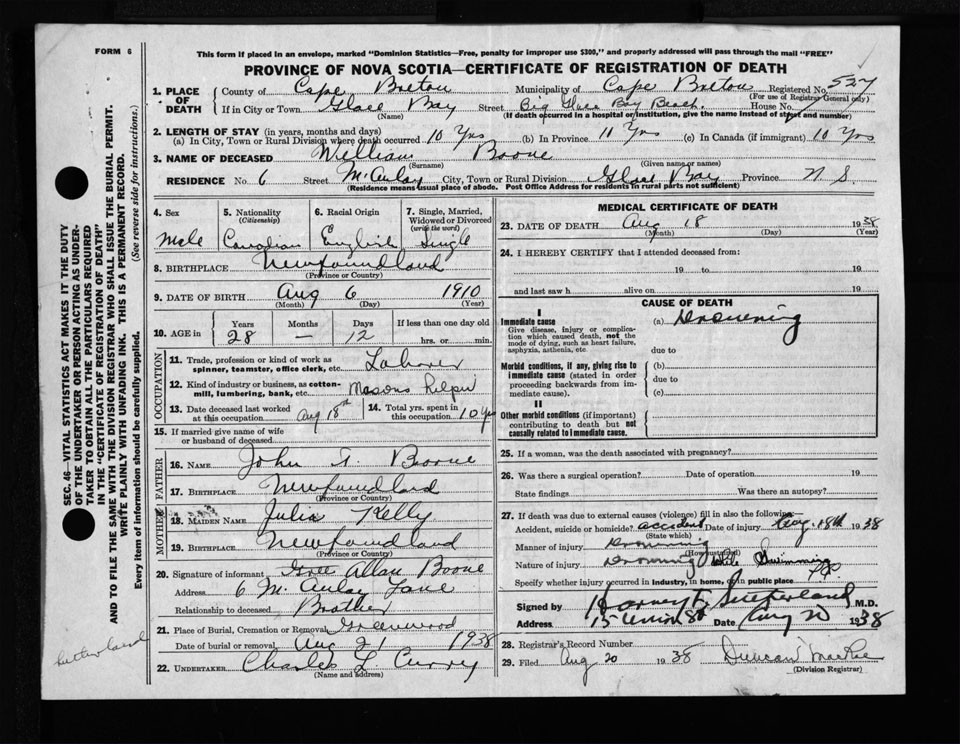 FORM 6
This form if placed in an envelope, marked "Dominion Statistics—Free, penalty for improper use $300," and properly addressed will pass through the mail "FREE"
PROVINCE OF NOVA SCOTIA—CERTIFICATE OF REGISTRATION OF DEATH
SEC. 46—VITAL STATISTICS ACT MAKES IT THE DUTY
OF THE UNDERTAKER OR PERSON ACTING AS UNDER-
TAKER TO OBTAIN ALL THE PARTICULARS REQUIRED
IN THE "CERTIFICATE OF REGISTRATION OF DEATH"
AND TO FILE THE SAME WITH THE DIVISION REGISTRAR WHO SHALL ISSUE THE BURIAL PERMIT.
WRITE PLAINLY WITH UNFADING INK. THIS IS A PERMANENT RECORD.
Every item of information should be carefully supplied. (See reverse side for instructions.)
1. PLACE OF DEATH
County of Cape Breton Municipality of Cape Breton Registered No. 527
(For use of Registrar General only)
If in City or Town Glace Bay Street Big Glace Bay Beach. House No.
(Name) (If death occurred in a hospital or institution, give the name instead of street and number)
2. LENGTH OF STAY (in years, months and days)
(a) In City, Town or Rural Division where death occurred 10 Yrs (b) In Province 11 Yrs (c) In Canada (if immigrant) 10 Yrs
3. NAME OF DECEASED William Boone
(Surname) (Given name or names)
RESIDENCE No. 6 Street McAulay City, Town or Rural Division Glace Bay Province N S
(Residence means usual place of abode. Post Office Address for residents in rural parts not sufficient)
4. Sex Male
5. Nationality (Citizenship) Canadian
6. Racial Origin English
7. Single, Married, Widowed or Divorced (write the word) Single
8. BIRTHPLACE Newfoundland
(Province or Country)
9. DATE OF BIRTH Aug 6 1910
(Month) (Day) (Year)
10. AGE in Years Months Days If less than one day
28 — 12 hrs. or min.
OCCUPATION
11. Trade, profession or kind of work as spinner, teamster, office clerk, etc. Laborer
12. Kind of industry or business, as cotton-mill, lumbering, bank, etc. Masons Helper
13. Date deceased last worked at this occupation Aug 18th
14. Total yrs. spent in this occupation 10 Yrs
15. If married give name of wife or husband of deceased
FATHER
16. NAME John T. Boone
17. BIRTHPLACE Newfoundland
(Province or Country)
MOTHER
18. MAIDEN NAME Julia Kelly
19. BIRTHPLACE Newfoundland
(Province or Country)
20. Signature of informant Allan Boone
Address 6 McAulay Lane
Relationship to deceased Brother
21. Place of Burial, Cremation or Removal Greenwood
Date of burial or removal Aug 21 1938
22. UNDERTAKER Charles L Curry
(Name and address)
MEDICAL CERTIFICATE OF DEATH
23. DATE OF DEATH Aug 18 1938
(Month) (Day) (Year)
24. I HEREBY CERTIFY that I attended deceased from:
19 to 19
and last saw h alive on 19
CAUSE OF DEATH
I
Immediate cause (a) Drowning
Give disease, injury or complication which caused death, not the mode of dying, such as heart failure, asphyxia, asthenia, etc.
due to
Morbid conditions, if any, giving rise to immediate cause (stated in order proceeding backwards from immediate cause).
(b)
due to
(c)
II
Other morbid conditions (if important) contributing to death but not causally related to immediate cause.
25. If a woman, was the death associated with pregnancy?
26. Was there a surgical operation? Date of operation 19
State findings Was there an autopsy?
27. If death was due to external causes (violence) fill in also the following:—
Accident, suicide or homicide? accident Date of injury Aug. 18th 1938
(State which)
Manner of injury Drowning
(How sustained)
Nature of injury Drowning while Swimming
Specify whether injury occurred in industry, in home, or in public place
Signed by Harvey F. Sutherland M.D.
Address Union St Date Aug 20 1938
28. Registrar's Record Number
29. Filed Aug 20 1938 Duncan MacRae
(Division Registrar)